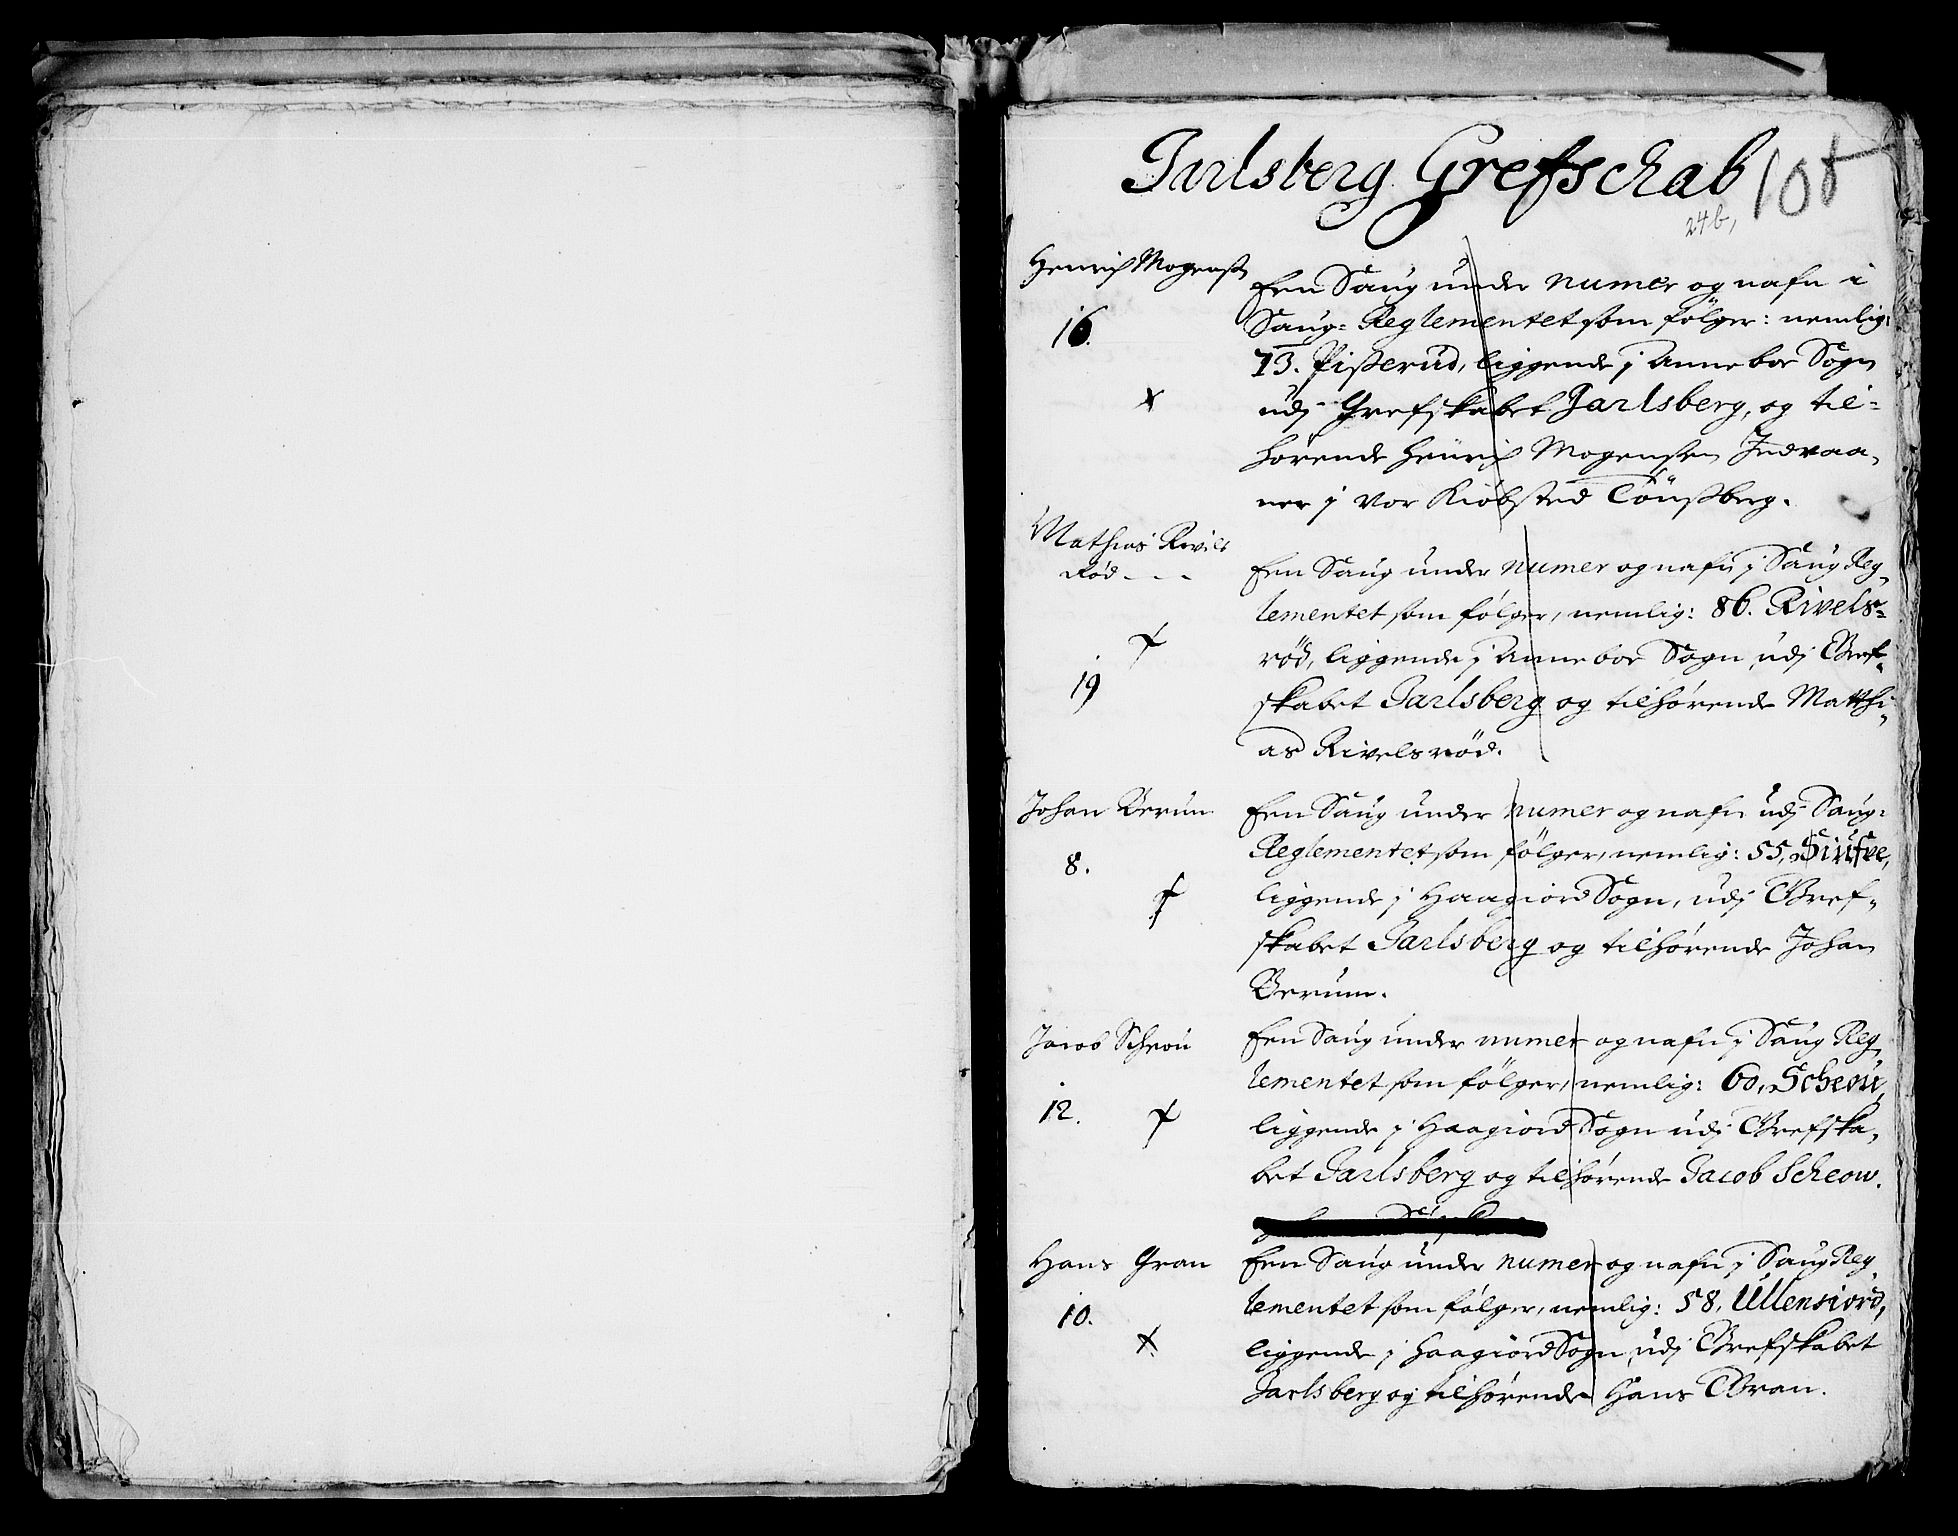 Jarlsberg Grefschab
108
24b,
Henrich Mogenß
16.
Een Saug under numer og nafn i
Saug= Reglementet som følger: nemlig:
73. Pißerud, liggende i Anneboe Sogn
udj Grefskabet Jarlsberg, og til=
hørende Henrich Mogensen Indvaa,
ner j vor Kiøbsted Tønßberg.
Mathias Rivels
Rød - - -
19
Een Saug under numer og nafn j Saug Reg,
lementet som følger, nemlig: 86. Rivels=
rød, liggende j Anneboe Sogn udj Gref=
skabet Jarlsberg og tilhørende Matthi,
as Rivelsrød.
Johan Berum
8.
Een Saug under numer og nafn udj Saug=
Reglementet som følger, nemlig: 55,
liggende j Haagiord Sogn, udj Gref=
skabet Jarlsberg og tilhørende Johan
Berum.
Jacob Scheou
12.
Een Saug under numer og nafn j Saug Reg,
lementet som følger, nemlig: 60, Scheou,
liggende j Haagiord Sogn udj Grefska,
bet Jarlsberg og tilhørende Jacob Scheow.
Hans Gran
10.
Een Saug under numer og nafn j Saug Reg,
lementet som følger, nemlig: 58, Ullensiord,
liggende j Haagiord Sogn udj Grefskabet
Jarlsberg og tilhørende Hans Gran.